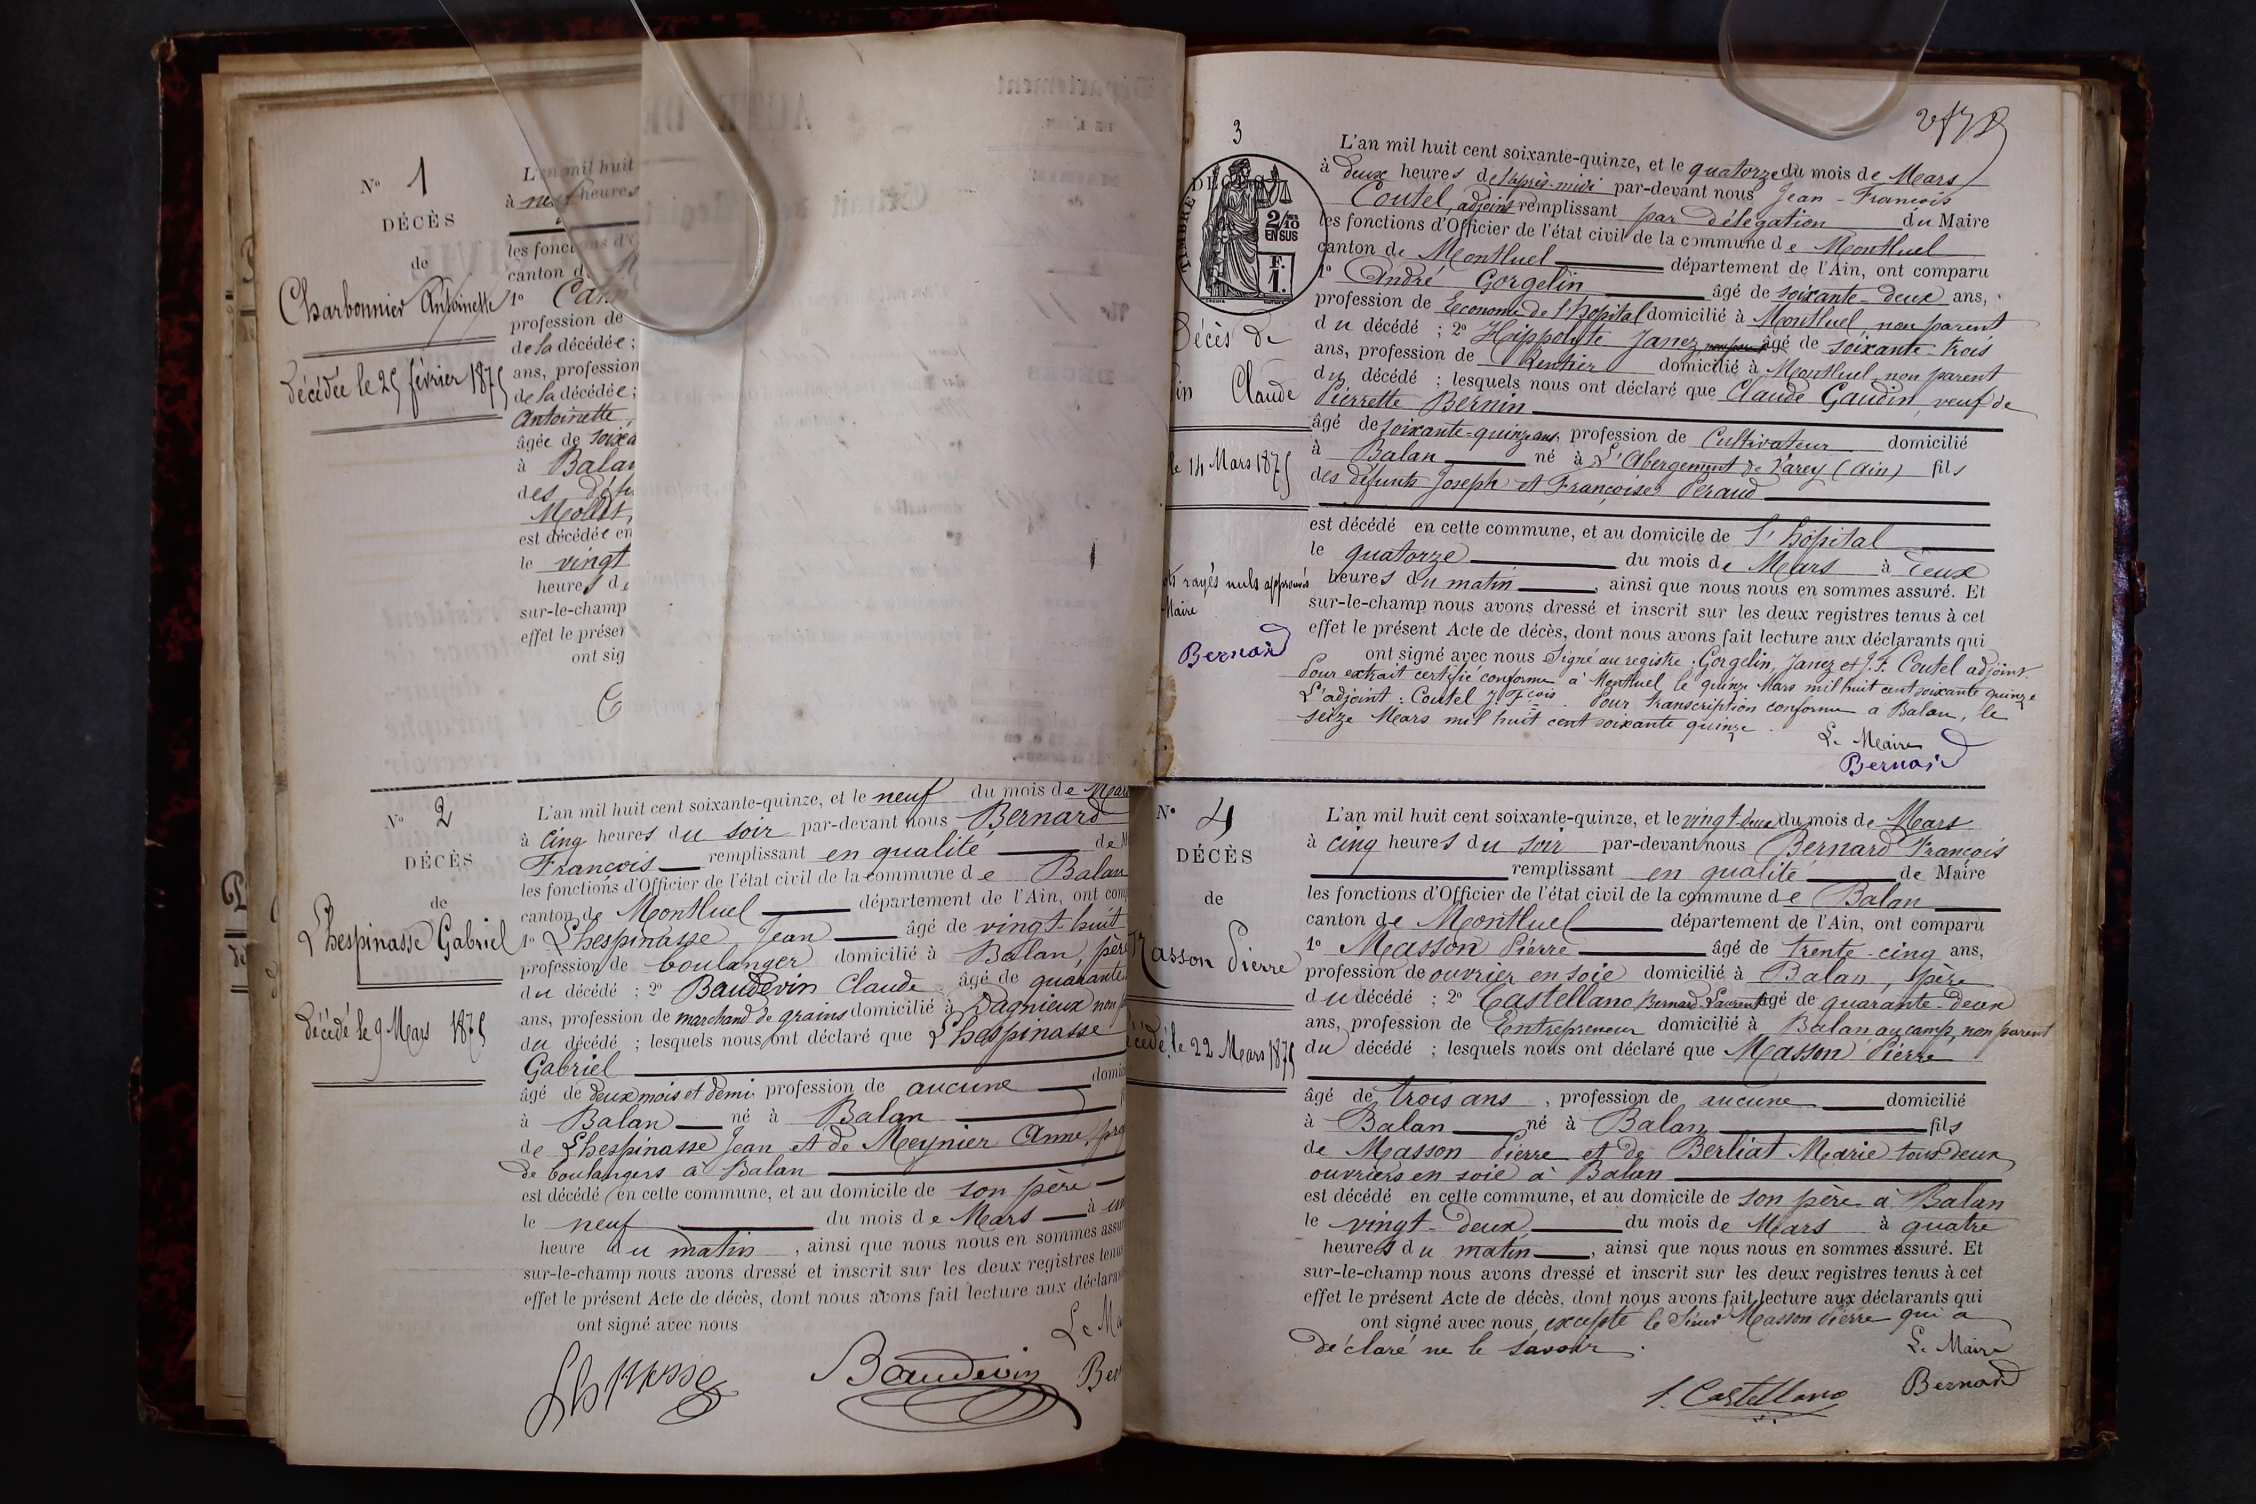 N° 1
DÉCÈS
de
Charbonnier Antoinette
décédée le 25 février 1875
L'an mil huit
à neuf heures
les fonctions d'O
canton d
1°
profession de
de la décédée ;
ans, profession
de la décédée ;
Antoinette,
âgée de soixa
à Balan
des défu
est décédée en
le vingt
heures d
sur-le-champ
effet le présen
ont sig
N° 2
DÉCÈS
de
Lhespinasse Gabriel
décédé le 9 Mars 1875
L'an mil huit cent soixante-quinze, et le neuf du mois de Mars
à cinq heures du soir par-devant nous Bernard
François remplissant en qualité de M
les fonctions d'Officier de l'état civil de la commune de Balan
canton de Montluel département de l'Ain, ont com
1° Lhespinasse Jean âgé de vingt-huit
profession de boulanger domicilié à Balan, père
du décédé ; 2° Baudevin Claude âgé de quarante
ans, profession de marchand de grains domicilié à Dagnieux non p
du décédé ; lesquels nous ont déclaré que Lhespinasse
Gabriel
âgé de deux mois et demi, profession de aucune domic
à Balan né à Balan
de Lhespinasse Jean et de Meynier Anne, pro
de boulangers à Balan
est décédé en cette commune, et au domicile de son père
le neuf du mois de Mars à un
heure du matin, ainsi que nous nous en sommes assur
sur-le-champ nous avons dressé et inscrit sur les deux registres tenus
effet le présent Acte de décès, dont nous avons fait lecture aux déclaran
ont signé avec nous
Le Ma
Baudevin
Ber
3
DÉCÈS
TIMBRE
2/10
EN SUS
F.
1.
Décès de
in Claude
le 14 Mars 1875
rayés nuls approuvés
Maire
Bernard
L'an mil huit cent soixante-quinze, et le quatorze du mois de Mars
à deux heures de l'après-midi par-devant nous Jean-François
Coutel, adjoint remplissant par délégation du Maire
les fonctions d'Officier de l'état civil de la commune de Montluel
canton de Montluel département de l'Ain, ont comparu
1° André Gorgelin âgé de soixante-deux ans,
profession de Econome de l'hôpital domicilié à Montluel non parent
du décédé ; 2° Hippolyte Janez âgé de soixante-trois
ans, profession de Rentier domicilié à Montluel non parent
du décédé ; lesquels nous ont déclaré que Claude Gaudin, veuf de
Pierrette Bernin
âgé de soixante-quinze ans, profession de Cultivateur domicilié
à Balan né à L'Abergement de Varey (Ain) fils
des défunts Joseph et Françoise Peraud
est décédé en cette commune, et au domicile de l'hôpital
le quatorze du mois de Mars à deux
heures du matin, ainsi que nous nous en sommes assuré. Et
sur-le-champ nous avons dressé et inscrit sur les deux registres tenus à cet
effet le présent Acte de décès, dont nous avons fait lecture aux déclarants qui
ont signé avec nous Signé au registre : Gorgelin, Janez et J. F. Coutel adjoint.
Pour extrait certifié conforme à Montluel le quinze Mars mil huit cent soixante quinze
L'adjoint : Coutel J. Fcois. Pour transcription conforme à Balan, le
seize Mars mil huit cent soixante quinze.
Le Maire
Bernard
N° 4
DÉCÈS
de
Masson Pierre
décédé le 22 Mars 1875
L'an mil huit cent soixante-quinze, et le vingt-deux du mois de Mars
à cinq heures du soir par-devant nous Bernard François
remplissant en qualité de Maire
les fonctions d'Officier de l'état civil de la commune de Balan
canton de Montluel département de l'Ain, ont comparu
1° Masson Pierre âgé de trente-cinq ans,
profession de ouvrier en soie domicilié à Balan, père
du décédé ; 2° Castellano Bernard Laurent âgé de quarante-deux
ans, profession de Entrepreneur domicilié à Balan au camp, non parent
du décédé ; lesquels nous ont déclaré que Masson Pierre
âgé de trois ans, profession de aucune domicilié
à Balan né à Balan fils
de Masson Pierre et de Berliat Marie tous deux
ouvriers en soie à Balan
est décédé en cette commune, et au domicile de son père à Balan
le vingt-deux du mois de Mars à quatre
heures du matin, ainsi que nous nous en sommes assuré. Et
sur-le-champ nous avons dressé et inscrit sur les deux registres tenus à cet
effet le présent Acte de décès, dont nous avons fait lecture aux déclarants qui
ont signé avec nous, excepté le Sieur Masson Pierre qui a
déclaré ne le savoir.
Le Maire
Bernard
Castellano